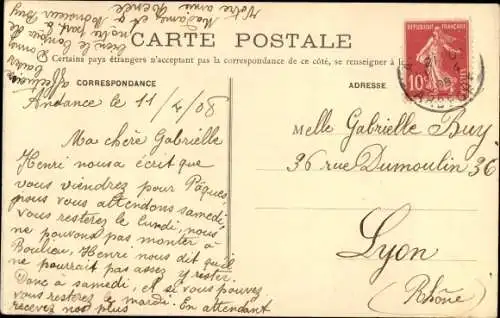 CARTE POSTALE
Certains pays étrangers n'acceptant pas la correspondance de ce côté, se renseigner à la
CORRESPONDANCE
ADRESSE
RÉPUBLIQUE FRANÇAISE
10
Andance le 11/4/08
Ma chère Gabrielle
Henri nous a écrit que
vous viendrez pour Pâques,
nous vous attendons samedi,
vous resterez le lundi, nous
ne pouvons pas monter à
Roulieu, Henri nous dit qu'il
ne pourrait pas assez y rester.
Donc à samedi, et si vous pouvez
vous resterez le mardi. En attendant
recevez nos plus
affectueux
baisers
Donne
bien le bonjour de
notre part à Monsieur Buy
Madame et à
Votre amie
Melle Gabrielle Buy
36 rue Dumoulin 36
Lyon
(Rhône)